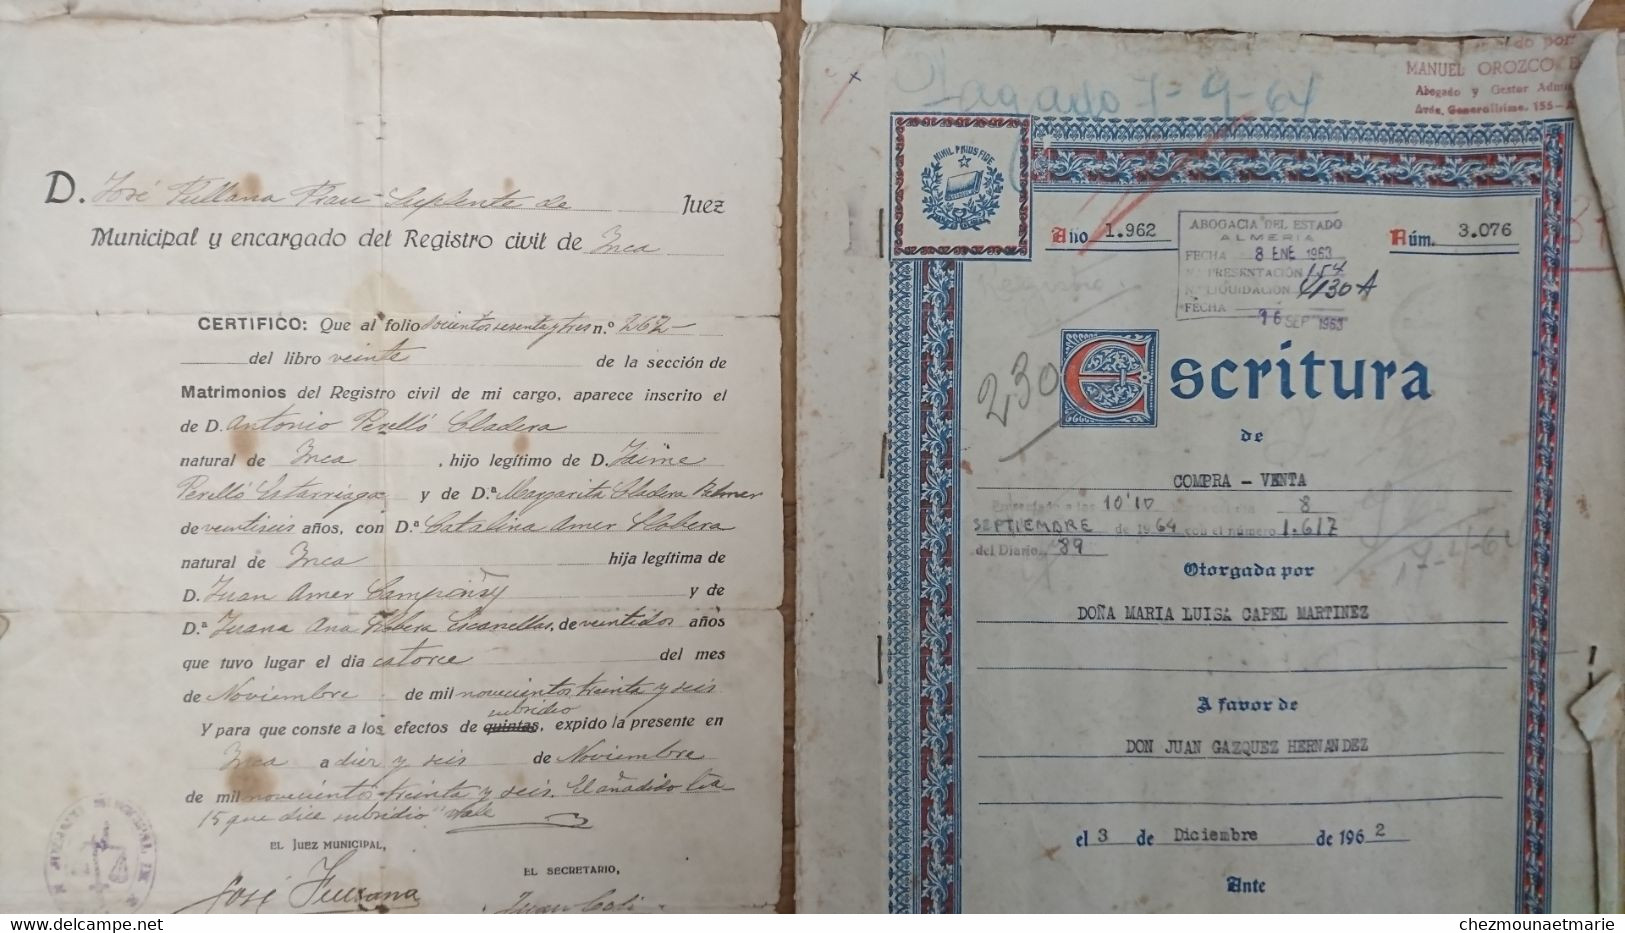 D. José Pullana Prau Suplente de Juez
Municipal y encargado del Registro civil de Inca
CERTIFICO: Que al folio docientos sesenta y tres n.º 262-
del libro veinte de la sección de
Matrimonios del Registro civil de mi cargo, aparece inscrito el
de D. Antonio Perelló Cladera
natural de Inca, hijo legítimo de D. Jaime
Perelló Estarriaga y de D.ª Margarita Cladera
de veintiseis años, con D.ª Catalina Amer Llobera
natural de Inca hija legítima de
D. Juan Amer y de
D.ª Juana Ana Llobera Escanellas, de veintidos años
que tuvo lugar el día catorce del mes
de Noviembre de mil novecientos treinta y seis
subsidio
Y para que conste a los efectos de quintas, expido la presente en
Inca a diez y seis de Noviembre
de mil novecientos treinta y seis. El añadido
15 que dice subsidio "vale
EL JUEZ MUNICIPAL,
EL SECRETARIO,
José
Juan
Pagado 7-9-64
do por
MANUEL OROZCO
Abogado y Gestor Admi
Avda. Generalísimo, 155-A
NIHIL PRIUS FIDE
Año 1.962
Núm. 3.076
ABOGACIA DEL ESTADO
ALMERIA
FECHA 8 ENE 1963
N.º PRESENTACIÓN 154
N.º LIQUIDACIÓN 430A
FECHA 16 SEP 1963
230
Escritura
de
COMPRA - VENTA
Presentado a las 10'10 del día 8
SEPTIEMBRE de 1964 con el número 1.617
del Diario 89
Otorgada por
DOÑA MARIA LUISA CAPEL MARTINEZ
A favor de
DON JUAN GAZQUEZ HERNANDEZ
el 3 de Diciembre de 1962
Ante
chezmounaetmarie